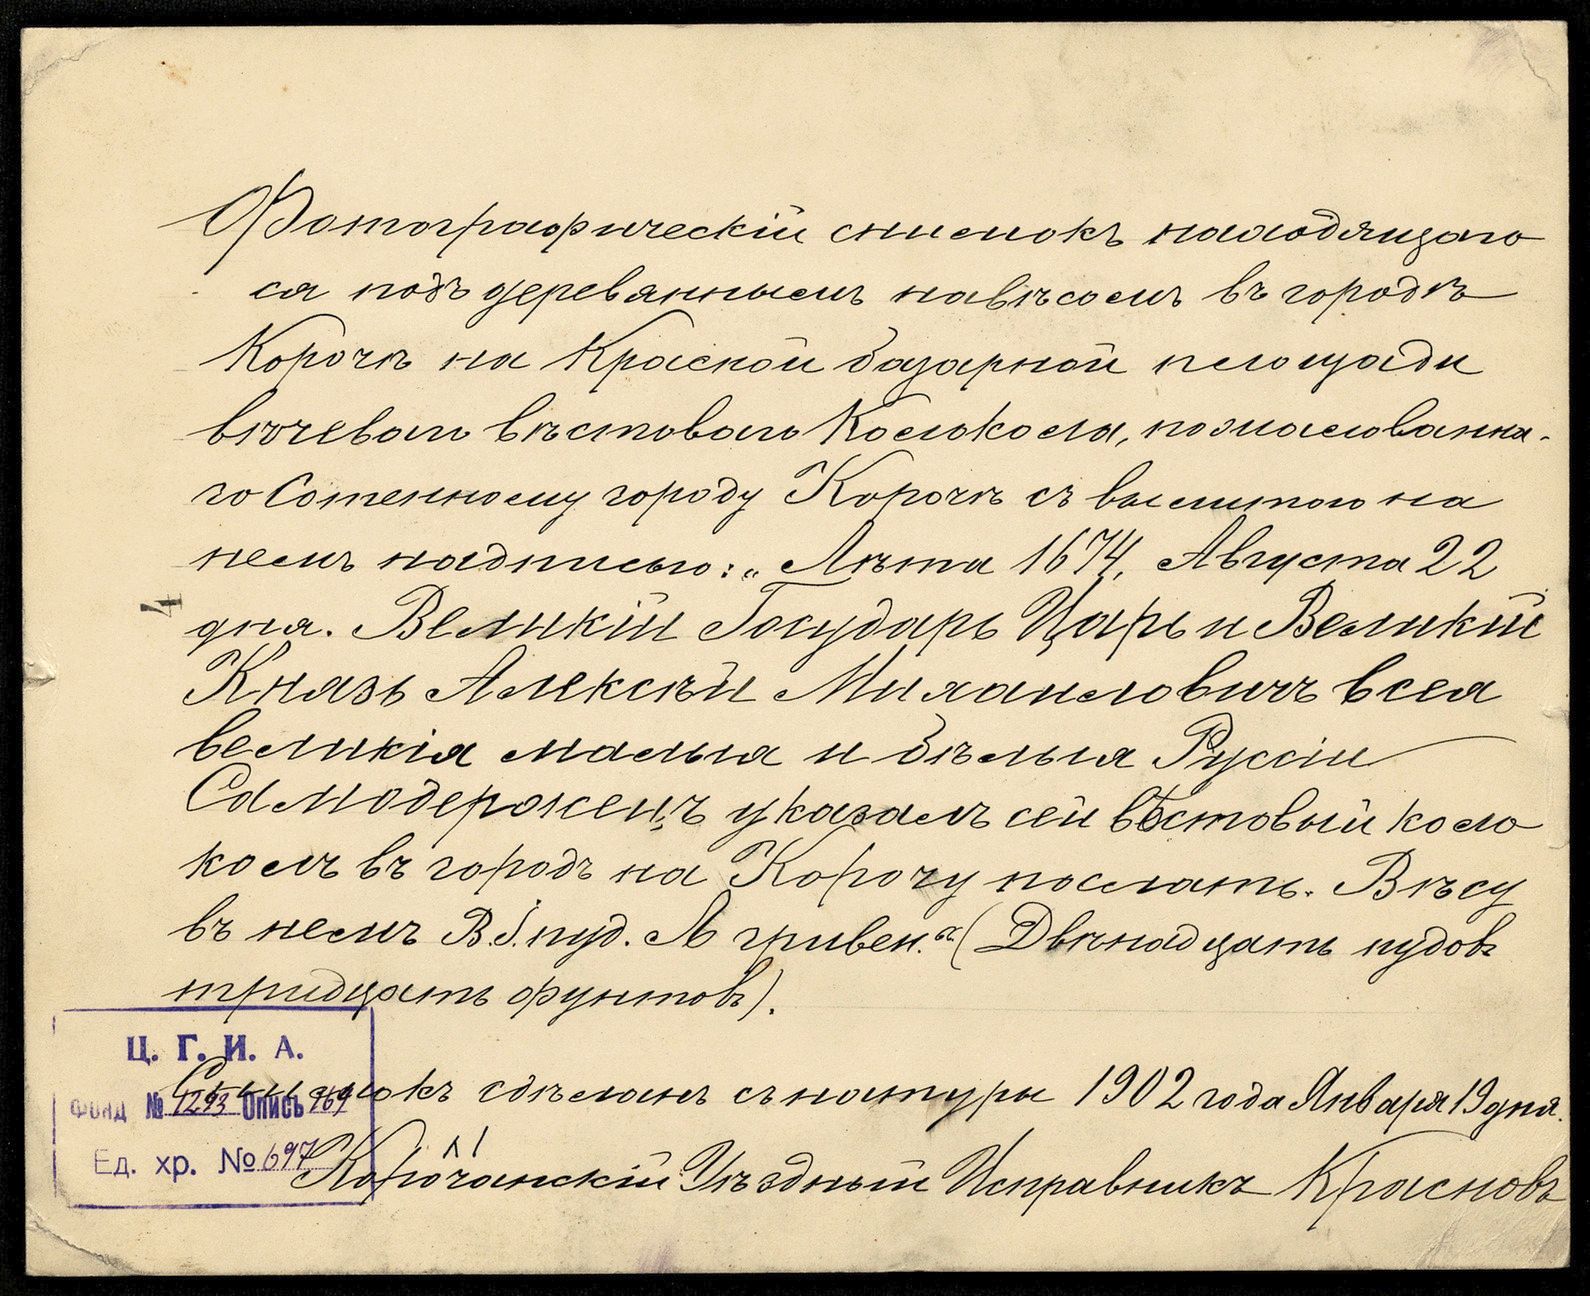 Фотографическій снимокъ находящаго
ся подъ деревяннымъ навѣсомъ въ городѣ
Корочѣ на Красной базарной площади
вѣчевого вѣстоваго Колокола, пожалованна-
го Сотенному городу Корочѣ съ вылитою на
немъ надписью: „Лѣта 1674, Августа 22
дня. Великій Государь Царь и Великій
Князь Алексѣй Михаиловичъ всея
великія малыя и бѣлыя Руссіи
Самодержецъ указалъ сей вѣстовый коло
колъ въ городъ на Корочу послать. Вѣсу
въ немъ В.і. пуд. Л гривен.“ (Двѣнадцать пудовъ
тридцать фунтовъ).
Снимокъ сдѣланъ съ натуры 1902 года Января 19 дня.
Корочанскій Уѣздный Исправникъ Красновъ
4
Ц. Г. И. А.
Фонд № 1293 Опись 169
Ед. хр. № 697